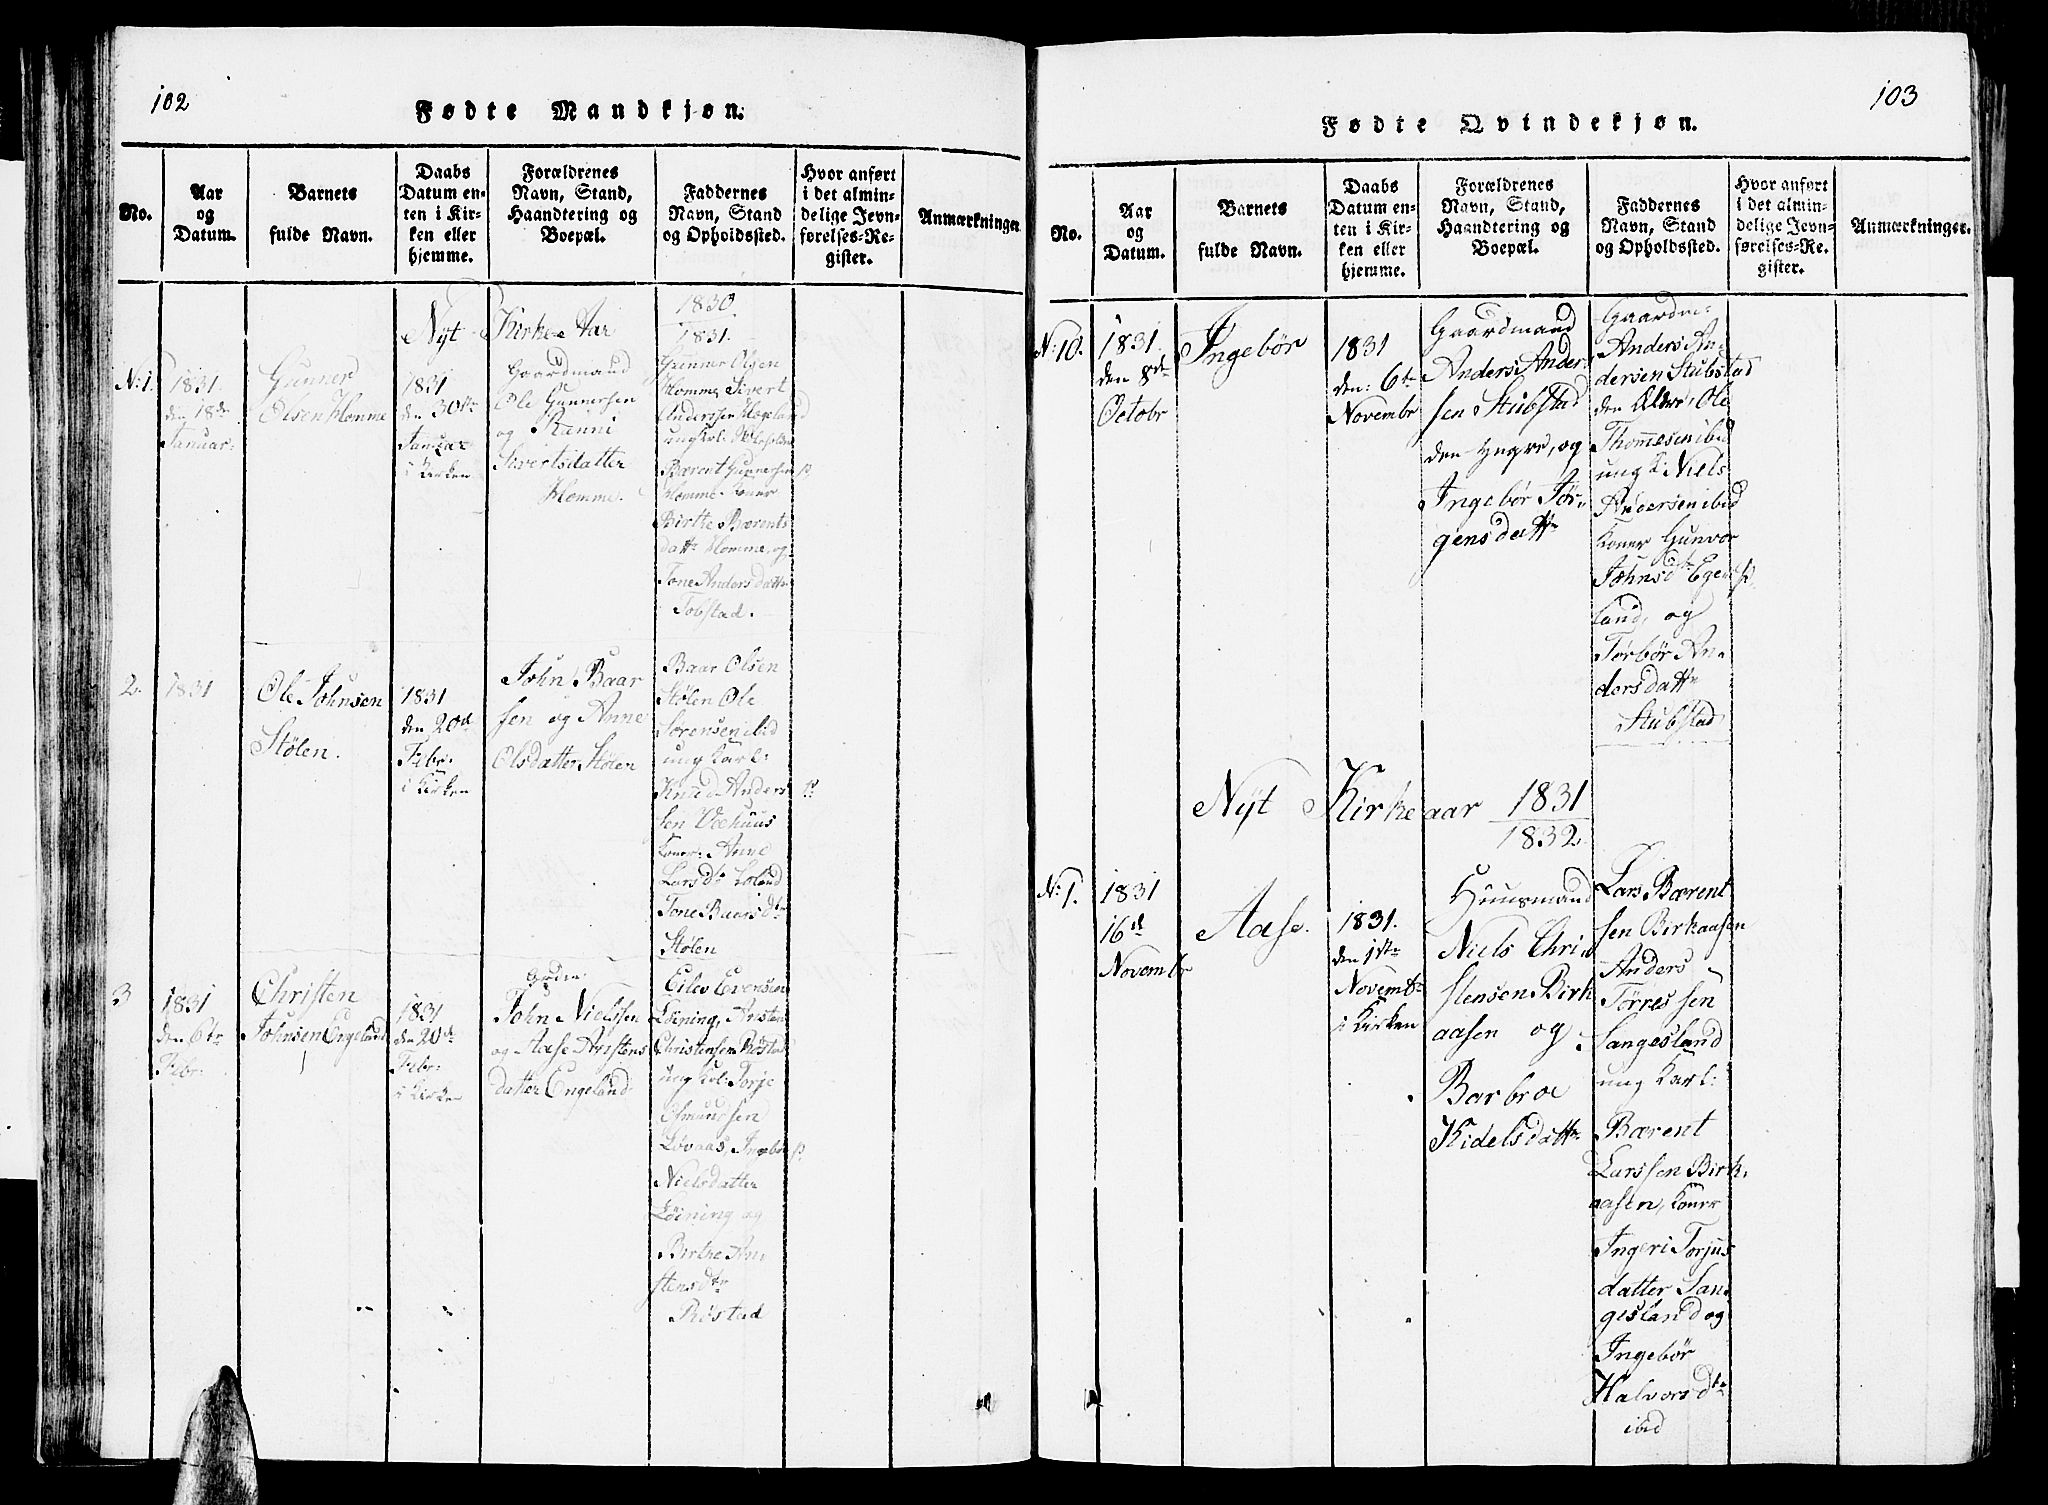 102
Fødte Mandkjøn.
No.
Aar
og
Datum.
Barnets
fulde Navn.
Daabs
Datum en-
ten i Kir-
ken eller
hjemme.
Forældrenes
Navn, Stand,
Haandtering og
Boepæl.
Faddernes
Navn, Stand
og Opholdssted.
Hvor anført
i det almin-
delige Jevn-
førelses-Re-
gister.
Anmærkninger
Nyt Kirke Aar
1830
1831.
No 1.
1831
den 18de
Januar:
Gunner
Olsen Homme
1831
den 30te
Januar
i Kirken
Gaardmand
Ole Gunnersen
og Ranni
Sivertsdatter
Homme.
Gunner Olsen
Homme, Sivert
Andersen Hageland
ung Karl:
Bærent Gunnersen
Homme. Koner
Birthe Bærents
datt. Homme, og
Tone Andersdatt.
Tobstad.
2.
1831
Ole Johnsen
Stølen.
1831
den 20d
Febr:
i Kirken
John Baar
sen og Anne
Olsdatter Stølen
Baar Olsen
Stølen Ole
Sørensen ibid
ung Karl:
Knud Anders
sen Veehuus
Koner: Anne
Larsd.
Tone Baarsdtr
Stølen
3
1831
den 6te
Febr.
Christen
Johnsen Engeland
1831
den 20de
Febr:
i Kirken
John Nielssen
og Aase Aristens
datter Engeland
Eilev Evensen
Løining, Aristen
Christensen Røstad
ung Karl: Torje
Osmunssen
Løvaas, Ingebør
Nielsdatter
Løining og
Birthe An-
stensdtr
Røstad
103
Fødte Qvindekjøn.
No.
Aar
og
Datum.
Barnets
fulde Navn.
Daabs
Datum en-
ten i Kir-
ken eller
hjemme.
Forældrenes
Navn, Stand,
Haandtering og
Boepæl.
Faddernes
Navn, Stand
og Opholdssted.
Hvor anført
i det almin-
delige Jevn-
førelses-Re-
gister.
Anmærkninger.
No 10.
1831.
den 8de
Octobr
Ingebør
1831
den: 6te
Novembr
Gaardmand
Anders Ander-
sen Stubstad
den Yngre, og
Ingebør Jør-
gensdatt.
Gaardm:
Anders An-
dersen Stubstad
den Ældre, Ole
Thommesen ibid
ung K: Niels
Andersen ibid
Koner Gunvor
Johnsd. Ege-
land, og
Torbør An-
dersdatt.
Stubstad
Nyt Kirkeaar 1831
1832
No 1.
1831
16d
Novembr
Aase.
1831.
den
Novembr
i Kirken
Huusmand
Niels Chri-
stensen Birk
aasen og
Barbroe
Kidelsdatt.
Lars Bærent
sen Birkaasen
Anders
Torressen
Sangesland
ung Karl:
Bærent
Larssen Birk-
aasen, Koner
Ingeri Torjus
datter San-
gesland og
Ingebør
Halvorsdtr
ibid